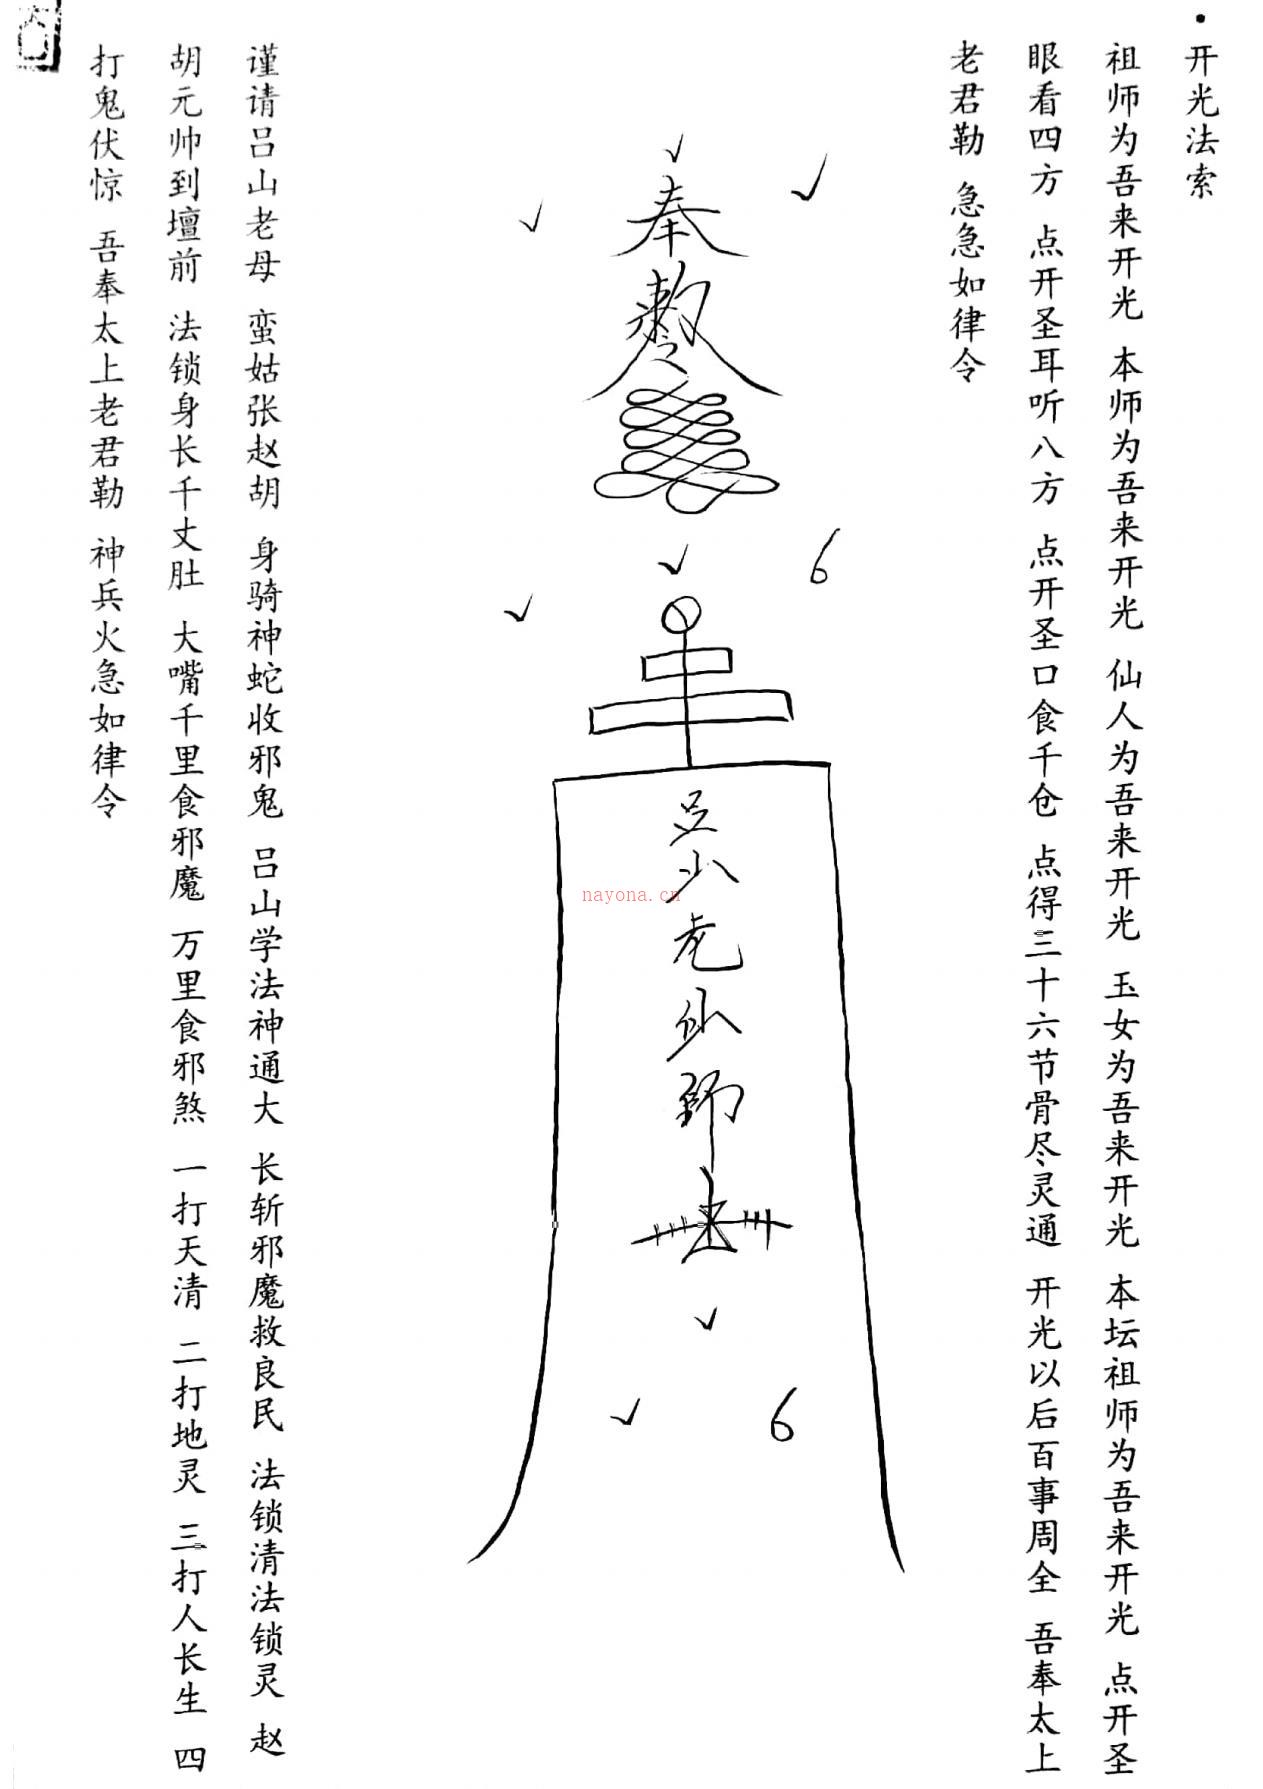 开光法索
祖师为吾来开光 本师为吾来开光 仙人为吾来开光 玉女为吾来开光 本坛祖师为吾来开光 点开圣
眼看四方 点开圣耳听八方 点开圣口食千仓 点得三十六节骨尽灵通 开光以后百事周全 吾奉太上
老君勒 急急如律令
奉
敕令
6
6
nayona.cn
谨请吕山老母 蛮姑张赵胡 身骑神蛇收邪鬼 吕山学法神通大 长斩邪魔救良民 法锁清法锁灵 赵
胡元帅到壇前 法锁身长千丈肚 大嘴千里食邪魔 万里食邪煞 一打天清 二打地灵 三打人长生 四
打鬼伏惊 吾奉太上老君勒 神兵火急如律令